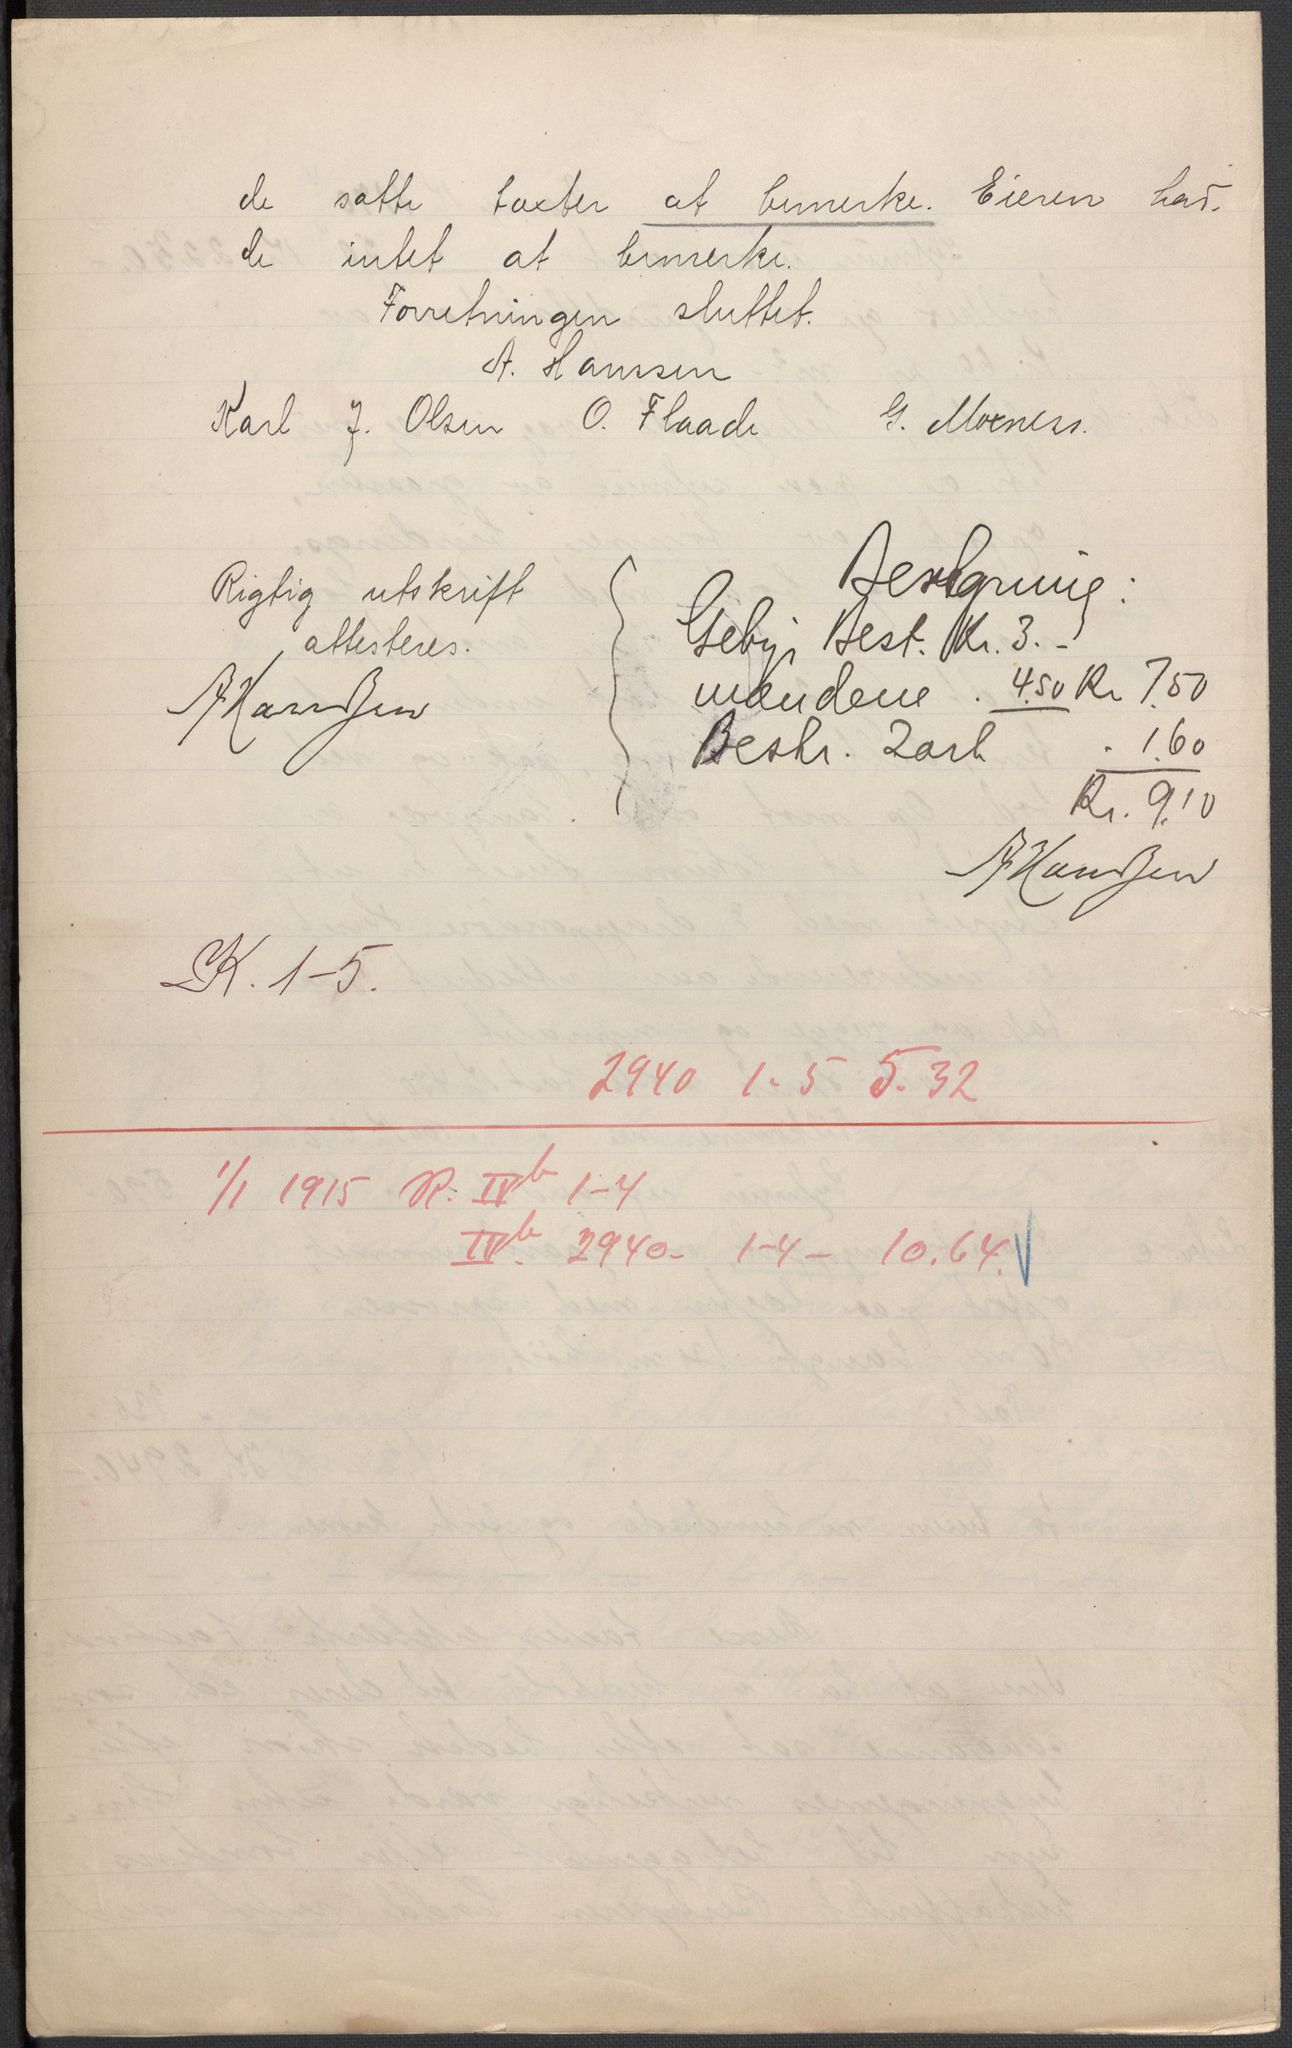 de satte taxter at bemerke. Eieren had-
de intet at bemerke.
Forretningen sluttet.
A. Hanssen
Karl J. Olsen O. Flaade G. Moxness.
Rigtig utskrift
attesteres.
AHanssen
Beregning:
Gebyr Best. Kr. 3.-
mændene . 4.50 Kr 7.50
Bestr. 2 ark . 1.60
Kr. 9.10
AHanssen
K. 1-5.
2940 1-5 5.32
1/1 1915 R. IVb 1-4
IVb. 2940- 1-4- 10.64.